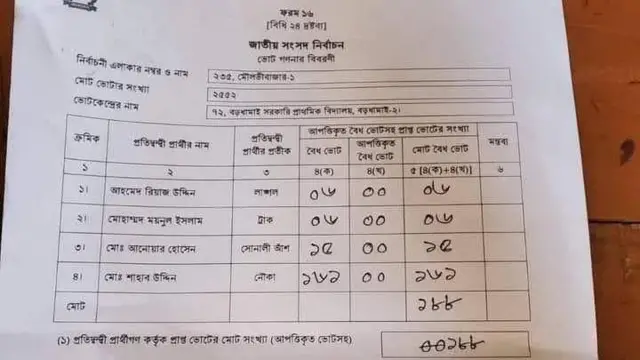 ফরম ১৬
[বিধি ২৪ দ্রষ্টব্য]
জাতীয় সংসদ নির্বাচন
ভোট গণনার বিবরণী
নির্বাচনী এলাকার নম্বর ও নাম ২৩৫, মৌলভীবাজার-১
মোট ভোটার সংখ্যা ২৫৫২
ভোটকেন্দ্রের নাম ৭২, বড়ধামাই সরকারি প্রাথমিক বিদ্যালয়, বড়ধামাই-২।
ক্রমিক প্রতিদ্বন্দ্বী প্রার্থীর নাম প্রতিদ্বন্দ্বী প্রার্থীর প্রতীক আপত্তিকৃত বৈধ ভোটসহ প্রাপ্ত ভোটের সংখ্যা মন্তব্য
বৈধ ভোট আপত্তিকৃত বৈধ ভোট মোট বৈধ ভোট
১ ২ ৩ ৪(ক) ৪(খ) ৫ [৪(ক)+৪(খ)] ৬
১। আহমেদ রিয়াজ উদ্দিন লাঙ্গল ০৬ ০০ ০৬
২। মোহাম্মদ ময়নুল ইসলাম ট্রাক ০৬ ০০ ০৬
৩। মোঃ আনোয়ার হোসেন সোনালী আঁশ ১৫ ০০ ১৫
৪। মোঃ শাহাব উদ্দিন নৌকা ১৬১ ০০ ১৬১
মোট ১৮৮
(১) প্রতিদ্বন্দ্বী প্রার্থীগণ কর্তৃক প্রাপ্ত ভোটের মোট সংখ্যা (আপত্তিকৃত ভোটসহ) ০০১৮৮